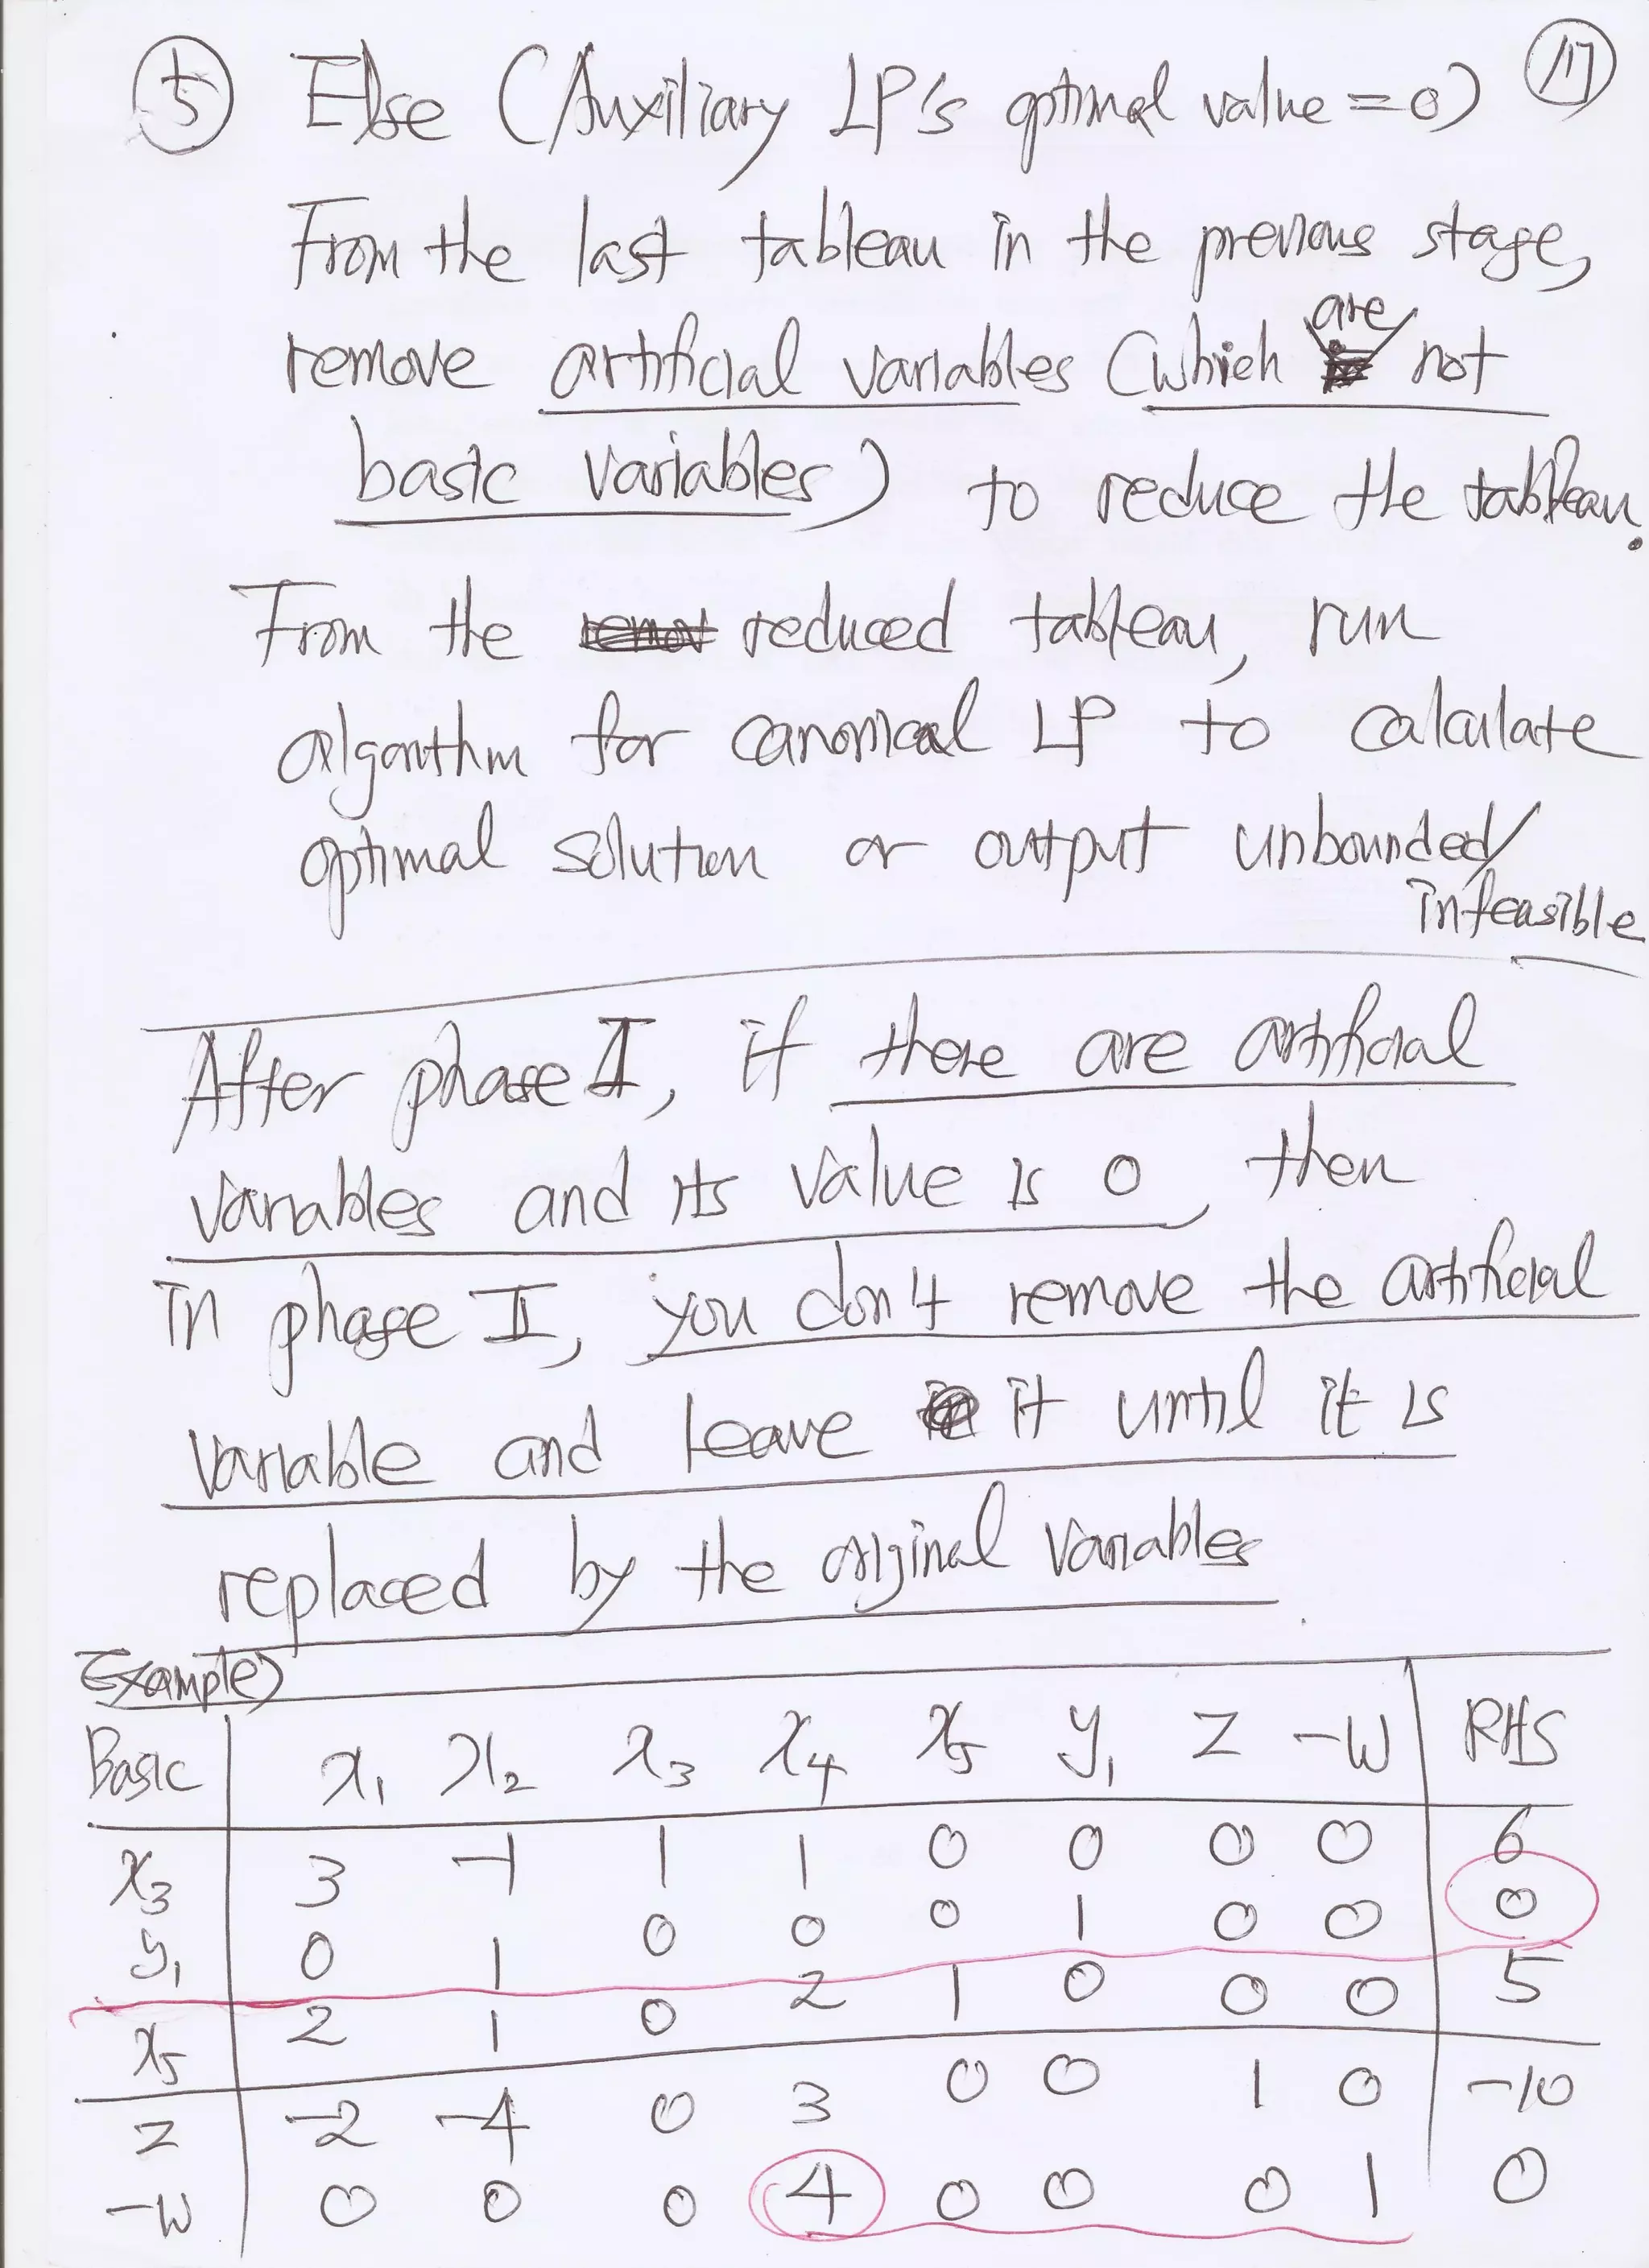 ⑤ Else (Auxiliary LP's optimal value = 0) 117
From the last tableau in the previous stage,
remove artificial variables (which are not
basic variables) to reduce the tableau.
From the reduced tableau, run
algorithm for canonical LP to calculate
optimal solution or output unbounded/
infeasible
After phase I, if there are artificial
variables and its value is 0, then
in phase II, you don't remove the artificial
variable and leave it until it is
replaced by the original variables
Example)
Basic x₁ x₂ x₃ x₄ x₅ y₁ z -w RHS
x₃ 3 -1 1 1 0 0 0 0 6
y₁ 0 1 0 0 0 1 0 0 0
x₅ 2 1 0 2 1 0 0 0 5
z -2 -4 0 3 0 0 1 0 -10
-w 0 0 0 4 0 0 0 1 0